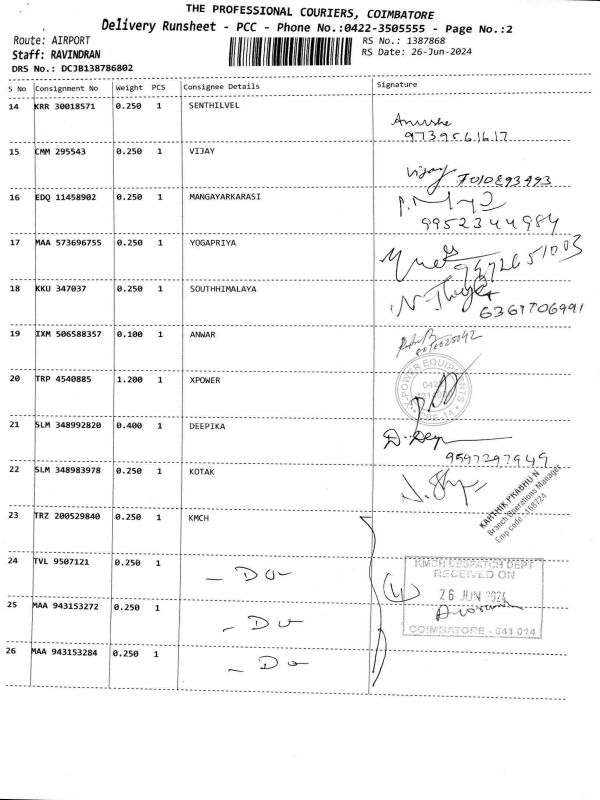 THE PROFESSIONAL COURIERS, COIMBATORE
Delivery Runsheet - PCC - Phone No.:0422-3505555 - Page No.:2
Route: AIRPORT
RS No.: 1387868
Staff: RAVINDRAN
RS Date: 26-Jun-2024
DRS No.: DCJB138786802
S No Consignment No Weight PCS Consignee Details Signature
14 KRR 30018571 0.250 1 SENTHILVEL
9739561617
15 CMM 295543 0.250 1 VIJAY
Vijay 7010893493
16 EDQ 11458902 0.250 1 MANGAYARKARASI
9952344984
17 MAA 573696755 0.250 1 YOGAPRIYA
18 KKU 347037 0.250 1 SOUTHHIMALAYA
6367706991
19 IXM 506588357 0.100 1 ANWAR
20 TRP 4540885 1.200 1 XPOWER
POWER EQUIPMENTS
21 SLM 348992820 0.400 1 DEEPIKA
9597297949
22 SLM 348983978 0.250 1 KOTAK
KARTHIK PRABHU N
Branch Operations Manager
Emp code - 168724
23 TRZ 200529840 0.250 1 KMCH
24 TVL 9507121 0.250 1 - Do -
KMCH DESPATCH DEPT
RECEIVED ON
26 JUN 2024
COIMBATORE - 641 014
(4)
25 MAA 943153272 0.250 1 - Do
26 MAA 943153284 0.250 1 - Do